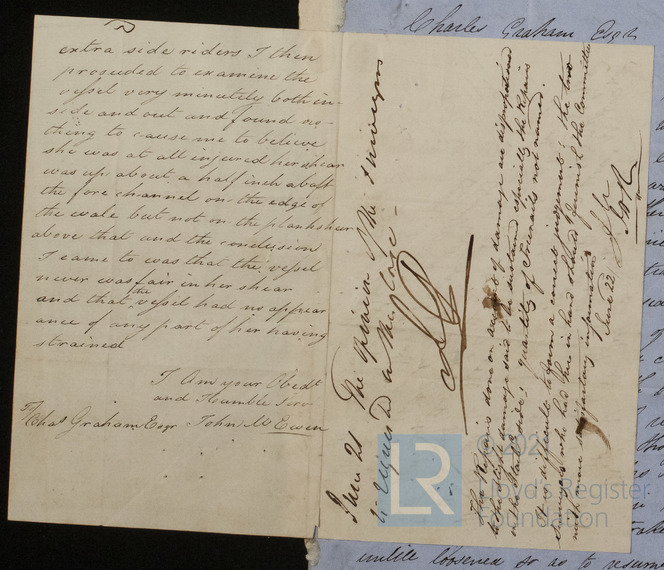 extra side riders I then
proceeded to examine the
vessel very minutely both in-
side and out and found no-
thing to cause me to believe
she was at all injured her shear
was up about a half inch abaft
the fore channel on the edge of
the wale but not on the planksheer
above that and the conclusion
I came to was that the vessel
never was fair in her shear
and that the vessel had no appear
ance of any part of her having
strained
I Am your Obedt
and Humble Serv
To Chas Graham Esqr John McEwen
June 21 The opinion of the surveyors
is requested in the case -
The Repairs done on account of damage are disproportioned
to the
damage said to be sustained especially the Repairs
on the Starb side; quantity of Treenails not named.
It is difficult to form a correct judgement; the two
Surveyors who had this in hand should furnish the Committee
more satisfactory information
June 22
Charles Graham Esqr
untill loosened so as to resum
LR
© 202
Lloyd's Register
Foundation